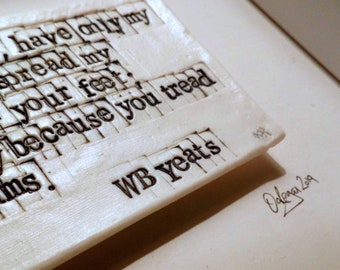 , have only my
spread my
your feet;
because you tread
ms.
WB Yeats
2019